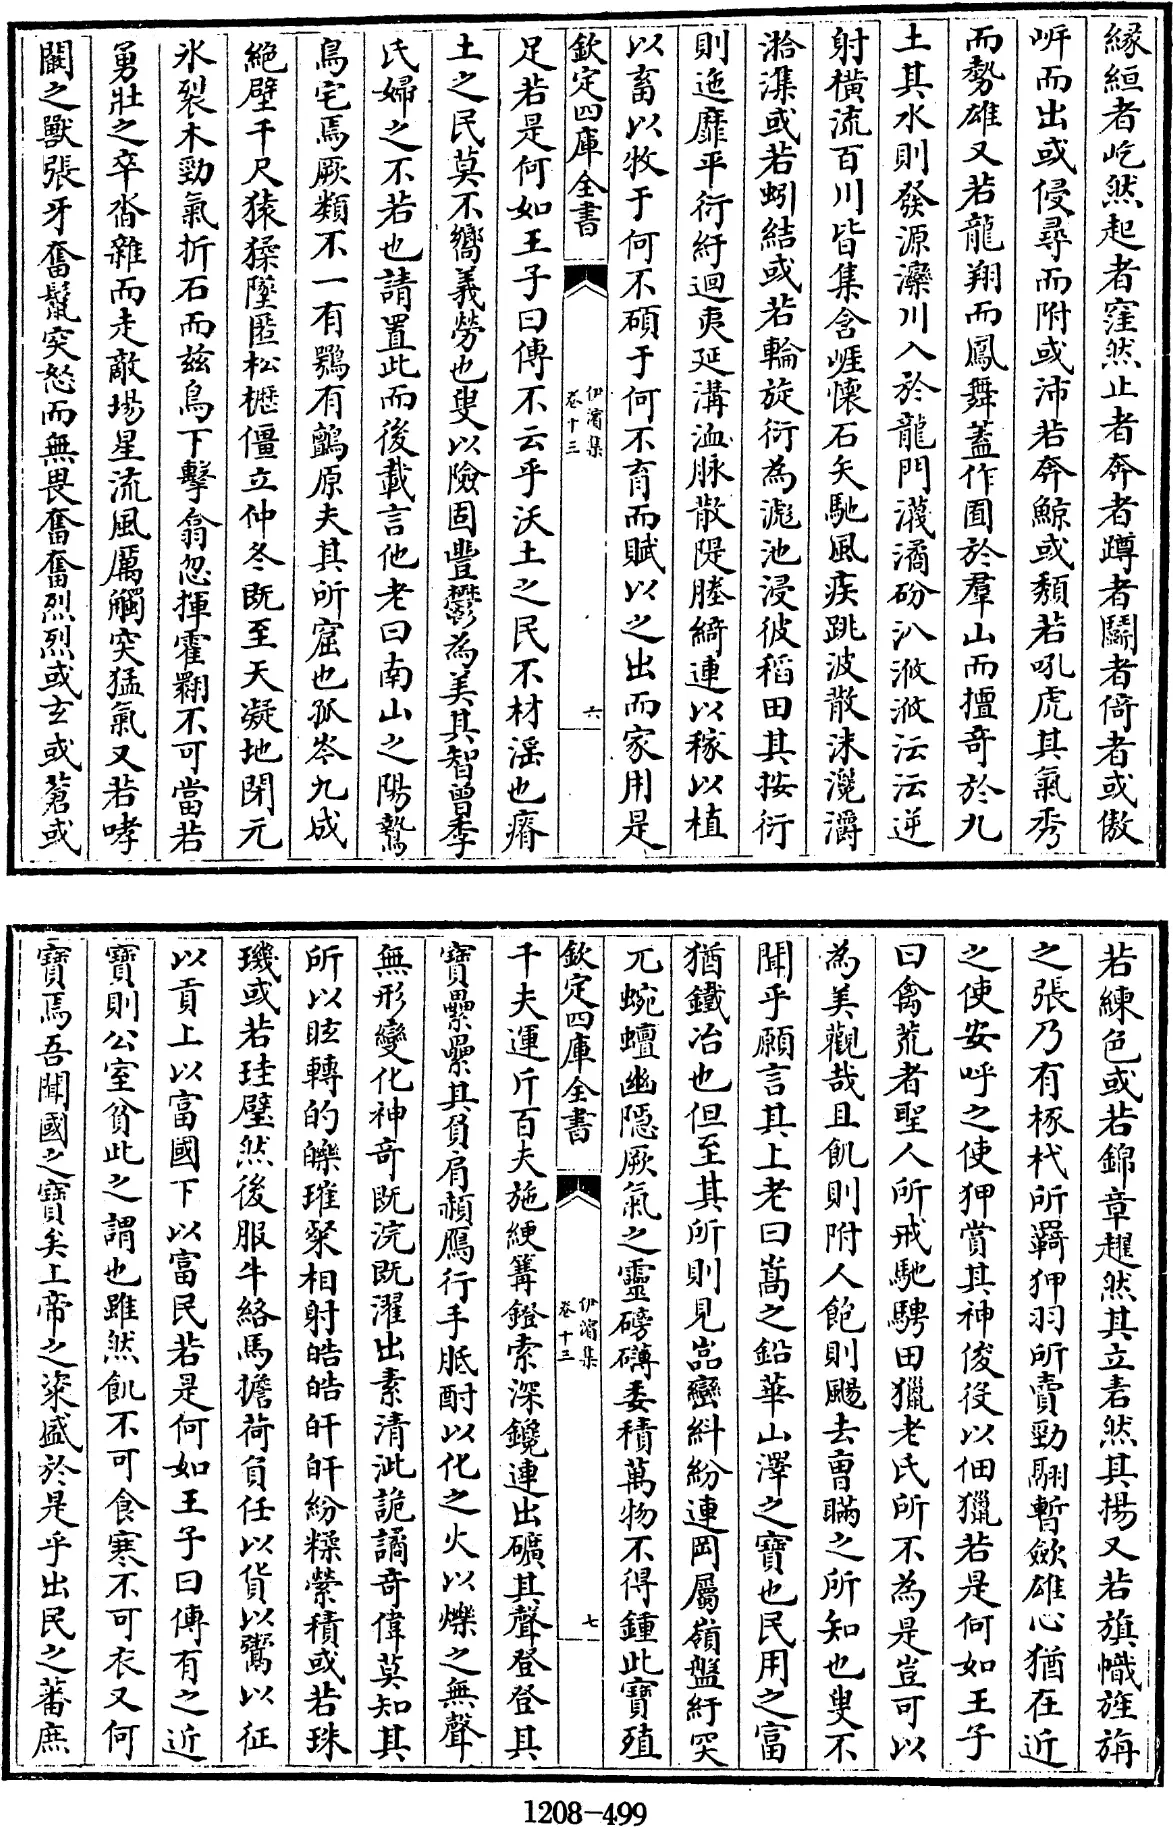 緣絙者屹然起者窪然止者奔者蹲者鬭者倚者或傲
岈而出或侵尋而附或沛若奔鯨或頹若吼虎其氣秀
而勢雄又若龍翔而鳳舞蓋作囿於羣山而擅奇於九
土其水則發源灤川入於龍門濈潏砏汃浟浟沄沄逆
射橫流百川皆集含崕懐石矢馳風疾跳波散沫瀺灂
㶊潗或若蚓結或若輪旋衍為滮池浸彼稻田其按衍
則迤靡平衍紆迴夷延溝洫脉散隄塍綺連以稼以植
以畜以牧于何不碩于何不育而賦以之出而家用是
欽定四庫全書
伊濱集
卷十三
六
足若是何如王子曰傳不云乎沃土之民不材滛也瘠
土之民莫不嚮義勞也叟以險固豐鬱為美其智曾季
氏婦之不若也請置此而後載言他老曰南山之陽鷙
鳥宅焉厥類不一有鶚有鸇原夫其所窟也孤岑九成
絶壁千尺猿猱墜匿松櫪僵立仲冬既至天凝地閉元
氷裂木勁氣折石而兹鳥下擊翕忽揮霍翺不可當若
勇壯之卒沓雜而走敵場星流風厲觸突猛氣又若哮
闞之獸張牙奮鬛突怒而無畏奮奮烈烈或玄或蒼或
若練色或若錦章趯然其立砉然其揚又若旗幟旌旃
之張乃有椓杙所羇狎羽所賣勁翮暫歛雄心猶在近
之使安呼之使狎賞其神俊役以佃獵若是何如王子
曰禽荒者聖人所戒馳騁田獵老氏所不為是豈可以
為美觀哉且飢則附人飽則颺去曺瞞之所知也叟不
聞乎願言其上老曰嵩之鉛華山澤之寶也民用之富
猶鐵冶也但至其所則見嵓巒糾紛連岡屬嶺盤紆突
兀蜿蟺幽隱厥氣之靈磅礴委積萬物不得鍾此寶殖
欽定四庫全書
伊濱集
卷十三
七
千夫運斤百夫施綆篝鐙索深鑱連出礦其聲登登其
寶纍纍其負肩赬鴈行手胝酎以化之火以爍之無聲
無形變化神竒既浣既濯出素清泚詭譎竒偉莫知其
所以眩轉的皪璀粲相射皓皓皔皔紛糅縈積或若珠
璣或若珪璧然後服牛絡馬擔荷負任以貨以鬻以征
以貢上以富國下以富民若是何如王子曰傳有之近
寶則公室貧此之謂也雖然飢不可食寒不可衣又何
寶焉吾聞國之寶矣上帝之粢盛於是乎出民之蕃庶
1208-499